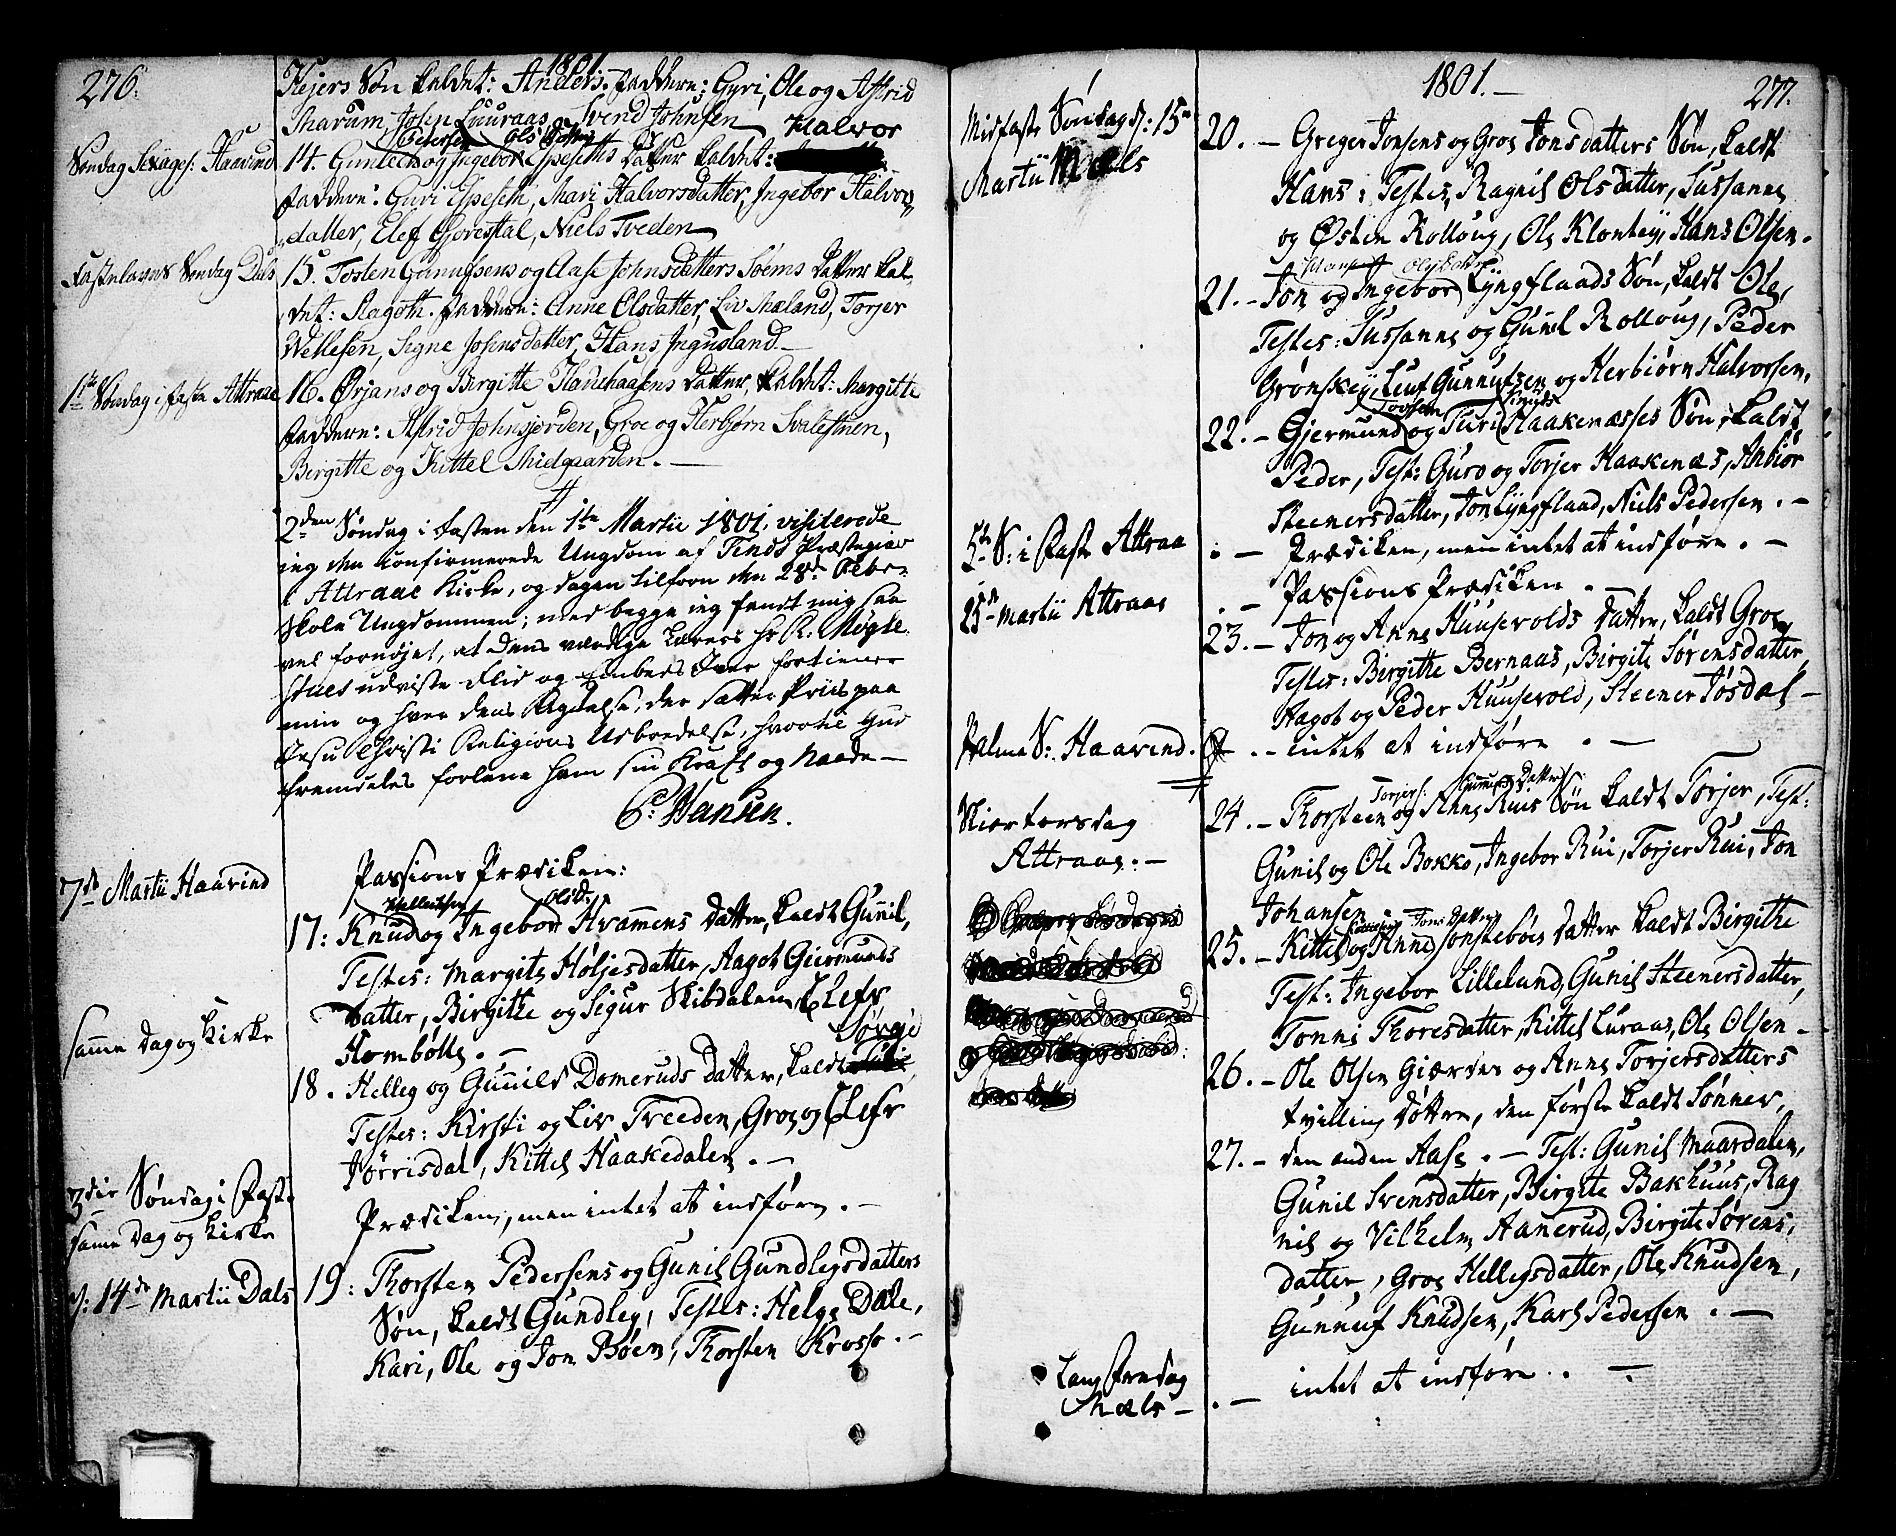 276.
1801.
Kejers Søn kaldet: Anders. Faddere: Gyri, Ole og Astrid
Marum, Josep Luuraas, Svend Johnsen
Søndag Sexages: Haavind
Pedersen Ols Datter Halvor
14. Gunleck og Ingebor Espeseths Datter kaldet:
Faddere: Guri Espeseth, Mari Halvorsdatter, Ingebor Halvors
datter, Elef Gjovestal, Niels Tveden
Fastelavns Søndag Dals
15. Tosten Gunnufsens og Aase Johnsdatters Søems Datter kal-
det: Aagoth. Faddere: Anne Olsdatter, Liv Mæland, Torjer
Wettesen, Signe Johnsdatter, Hans Ingusland
1te Søndag i Faste Attraae
16. Ørjans og Birgitte Hanehaasens Datter, kaldet: Margitte
Faddere: Astrid Johnsjorden, Groe og Herbjørn Svalestuen,
Birgitte og Kittel Midgaarden.
2den Søndag i Fasten den 1te Martii 1801. visiterede
jeg den confirmerede Ungdom af Tinds Præstegield
i Attraae Kirke, og dagen tilforn den 28de Febr.
Skole Ungdommen; med begge jeg fandt mig saa
vel fornøjet, at Dens værdige Lærer Hr R. Møgle-
stues udviste Flid og Embeds Iver fortiener
min og hver dens Agtelse, der sætter Priis paa
Jesu Christi Religions Udbredelse, hvortil Gud
fremdeles forlene ham sin Kraft og Naade
P. Hansen.
7de Martii Haavind
Passions Prædiken:
Hellecksen Olsd.
17: Knud og Ingebor Hvammens Datter, kaldt Gunil,
Testes: Margite Høljesdatter, Aagot Giermunds
datter, Birgithe og Sigur Skibdalen, Elefr
Hombølle.
samme dag og Kirke
Sørgie
18. Helleg og Gunnild Domeruds Datter, kaldt
Testes: Kirsti og Liv Treeden, Groe og Elefr
Jørrisdal, Kittel Haakedalen.
3die Søndag i Faste
same Dag og Kirke
Prædiken, men intet at indføre.
d: 14de Martii Dals
19: Thorsten Pedersens og Gunil Gundlegsdatters
Søn, kaldt Gundleg, Testes: Helge Dale,
Kari, Ole og Jon Bøen, Thorsten Krosso.
1801.
277.
Midfaste Søndag d: 15de
Martii Mæls
20. Greger Jonsens og Groe Jonsdatters Søn, kaldt
Hans: Testes, Ragnil Olsdatter, Sussanne
og Østen Rolloug, Ole Klontey, Hans Olsen.
Olsdatter
21. Jon og Ingebor Lyngflaads Søn, kaldt Ole,
Testes: Sussanne og Gunil Rolloug, Peder
Grønskey, Leuf Gunnufsen og Herbiørn Halvorsen.
Tovsen Knuds
22. Gjermund og Turi Haakenæsses Søn, kaldt
Peder, Test: Guro og Torjer Haakenæs, Anbiør
Steenersdatter, Jon Lyngflaad, Niels Pedersen.
5te S: i Faste Attraa
Prædiken, men intet at indføre.
25de Martii Attraae
Passions Prædiken.
23. Jon og Anne Huusevolds Datter, kaldt Groe,
Testes: Birgithe Bernaas, Birgite Sørensdatter,
Aagot og Peder Huusevold, Steener Jøsdal
Palme S: Haavind.
intet at indføre.
Skiertorsdag
Attraae.
Torjers: Gunnufs Datter
24. Thorsteen og Anne Ruis Søn kaldt Torjer, Test:
Gunil og Ole Bokko, Ingebor Rui, Torjer Rui, Jon
Johansen
Jons Datter
25. Kittel og Anne Jonstebøes Datter kaldt Birgithe
Test: Ingebor Lillelund, Gunil Steenersdatter,
Tonne Thoresdatter, Kittel Luraas, Ole Olsen
26. Ole Olsen Giærdes og Anne Torjersdatters
tvilling Døttre, den første kaldt Sønnev,
27. den anden Aase. Test: Gunil Maardalen,
Gunil Svensdatter, Birgite Bakhuus, Rag
nil og Vilhelm Aanerud, Birgite Sørens-
datter, Groe Hellegsdatter, Ole Knudsen,
Gunnuf Knudsen, Karl Pedersen.
Lang Fredag
Mæls
intet at indføre.